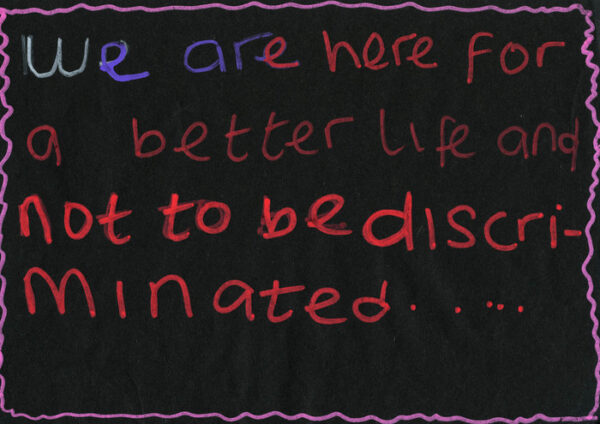 We are here for
a better life and
not to be discri-
minated. . ...